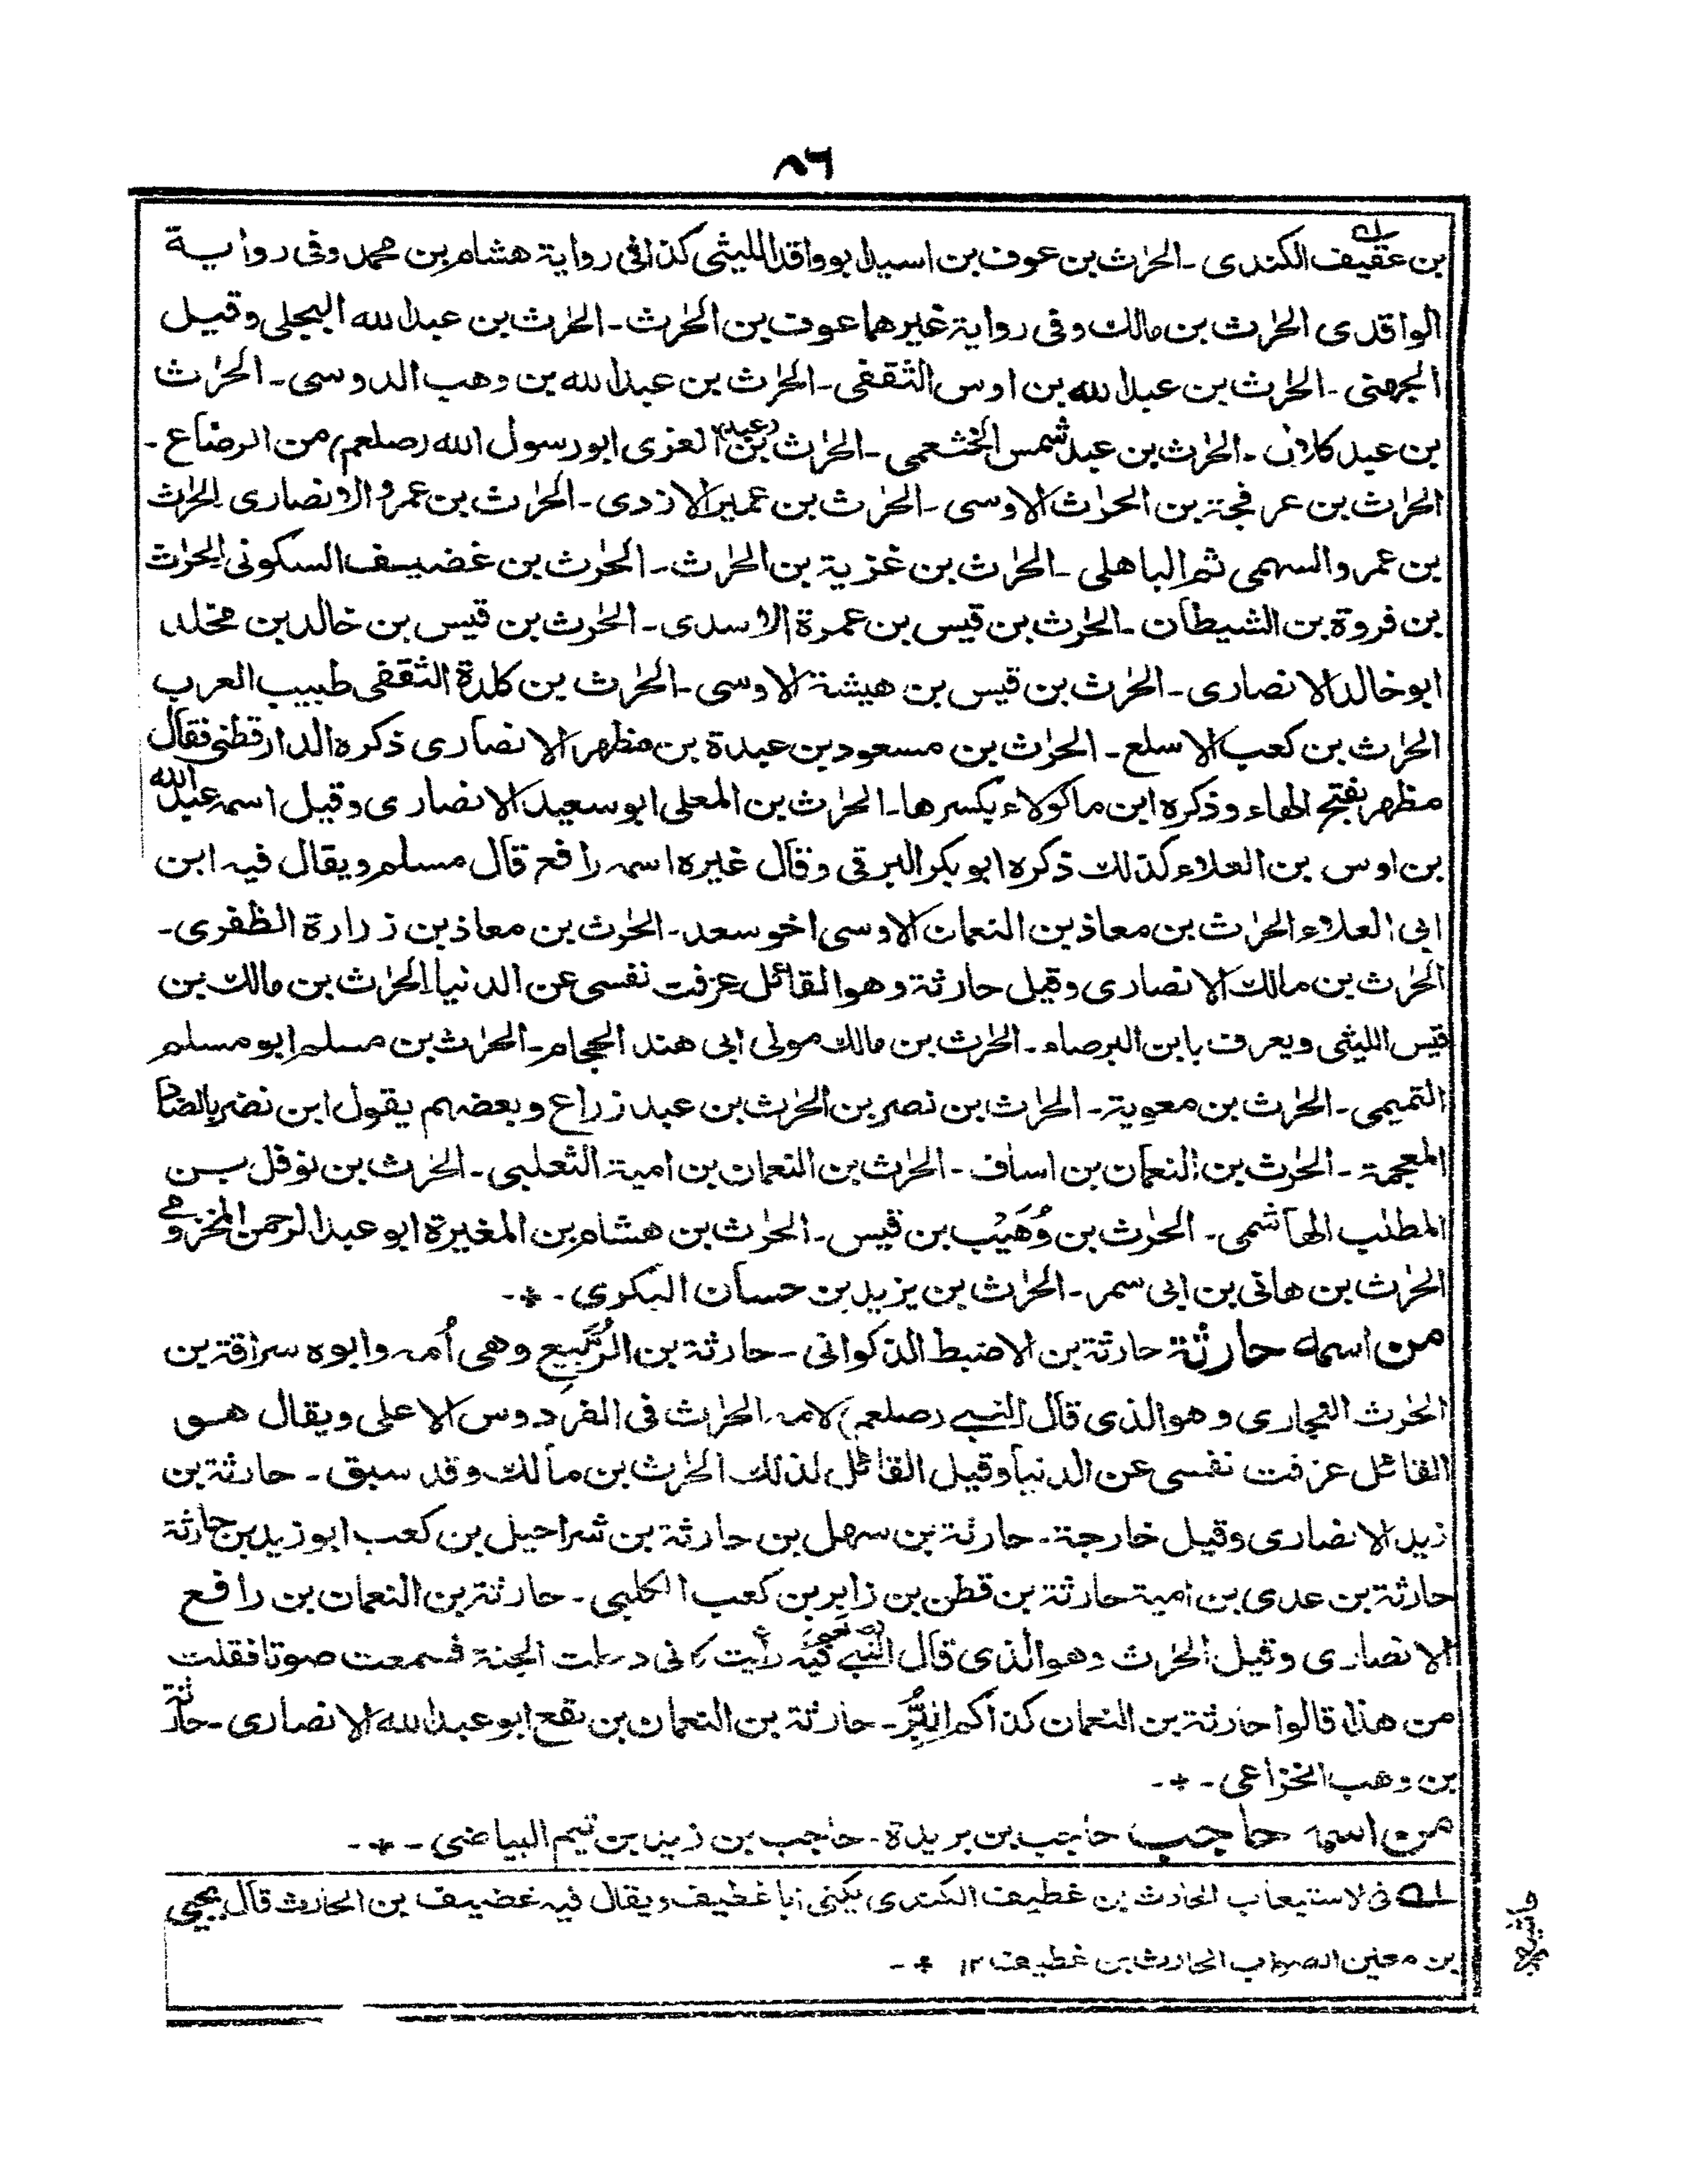 ٨٦
بن عقيف الكندى ـ الحٰرث بن عوف بن اسيد ابو واقد الليثى كذا فى رواية هشام بن محمد وفى رواية
الواقدى الحٰرث بن مالك وفى رواية غيرهما عوف بن الحٰرث ـ الحٰرث بن عبد الله البجلى وقيل
الجهنى ـ الحٰرث بن عبد الله بن اوس الثقفى ـ الحٰرث بن عبد الله بن وهب الدوسى ـ الحٰرث
بن عبد كلال ـ الحٰرث بن عبد شمس الخثعمى ـ الحٰرث بن (عبد) العزى ابو رسول الله (صلعم) من الرضاع ـ
الحٰرث بن عرفجة بن الحٰرث الاوسى ـ الحٰرث بن عمير الازدى ـ الحٰرث بن عمرو الانصارى الحٰرث
بن عمرو السهمى ثم الباهلى ـ الحٰرث بن غزية بن الحٰرث ـ الحٰرث بن غضيف السكونى الحٰرث
بن فروة بن الشيطان ـ الحٰرث بن قيس بن عمرة الاسدى ـ الحٰرث بن قيس بن خالد بن مخلد
ابو خالد الانصارى ـ الحٰرث بن قيس بن هيشة الاوسى ـ الحٰرث بن كلدة الثقفى طبيب العرب
الحٰرث بن كعب الاسلع ـ الحٰرث بن مسعود بن عبدة بن مظهر الانصارى ذكره الدارقطنى فقال
مظهر بفتح الهاء وذكره ابن ماكولاء بكسرها ـ الحٰرث بن المعلى ابو سعيد الانصارى وقيل اسمه عبد الله
بن اوس بن العلاء كذلك ذكره ابو بكر البرقى وقال غيره اسمه رافع قال مسلم ويقال فيه ابن
ابى العلاء الحٰرث بن معاذ بن النعمان الاوسى اخو سعد ـ الحٰرث بن معاذ بن زرارة الظفرى ـ
الحٰرث بن مالك الانصارى وقيل حارثة وهو القائل عزفت نفسى عن الدنيا الحٰرث بن مالك بن
قيس الليثى ويعرف بابن البرصاء ـ الحٰرث بن مالك مولى ابى هند الحجام ـ الحٰرث بن مسلم ابو مسلم
التميمى ـ الحٰرث بن معوية ـ الحٰرث بن نصر بن الحٰرث بن عبد زراع وبعضهم يقول ابن نضر بالضاد
المعجمة ـ الحٰرث بن النعمان بن اساف ـ الحٰرث بن النعمان بن امية الثعلبى ـ الحٰرث بن نوفل بن
المطلب الهاشمى ـ الحٰرث بن وُهَيْب بن قيس ـ الحٰرث بن هشام بن المغيرة ابو عبد الرحمن المخزومى
الحٰرث بن هانى بن ابى سمر ـ الحٰرث بن يزيد بن حسان البكرى ـ ٭ ـ
من اسمه حارثة حارثة بن الاضبط الذكوانى ـ حارثة بن الرُّبَيِّع وهى اُمه وابوه سراقة بن
الحٰرث النجارى وهو الذى قال النبى (صلعم) لامه الحٰرث فى الفردوس الاعلى ويقال هو
القائل عزفت نفسى عن الدنيا وقيل القائل لذلك الحٰرث بن مالك وقد سبق ـ حارثة بن
زيد الانصارى وقيل خارجة ـ حارثة بن سهل بن حارثة بن شراحيل بن كعب ابو زيد بن حارثة
حارثة بن عدى بن امية حارثة بن قطن بن زابر بن كعب الكلبى ـ حارثة بن النعمان بن رافع
الانصارى وقيل الحٰرث وهو الذى قال النبى فيه رأيت كانى دخلت الجنة فسمعت صوتا فقلت
من هذا قالوا حارثة بن النعمان كذاكم البِرُّ ـ حارثة بن النعمان بن نقع ابو عبد الله الانصارى ـ حارثة
بن وهب الخزاعى ـ ٭ ـ
من اسمه حاجب حاجب بن بريدة ـ حاجب بن زيد بن تيم البياضى ـ ٭ ـ
له فى الاستيعاب الحارث بن غطيف الكندى يكنى ابا غطيف ويقال فيه غضيف بن الحارث قال يحيى
بن معين الصواب الحارث بن غطيف ١٢ ٭ ـ
حاشيه